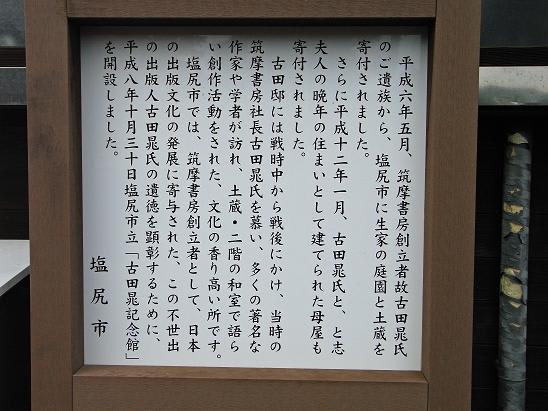 平成六年五月、筑摩書房創立者故古田晁氏
のご遺族から、塩尻市に生家の庭園と土蔵を
寄付されました。
さらに平成十二年一月、古田晁氏と、と志
夫人の晩年の住まいとして建てられた母屋も
寄付されました。
古田邸には戦時中から戦後にかけ、当時の
筑摩書房社長古田晁氏を慕い、多くの著名な
作家や学者が訪れ、土蔵・二階の和室で語ら
い創作活動をされた、文化の香り高い所です。
塩尻市では、筑摩書房創立者として、日本
の出版文化の発展に寄与された、この不世出
の出版人古田晁氏の遺徳を顕彰するために、
平成八年十月三十日塩尻市立「古田晁記念館」
を開設しました。
塩尻市